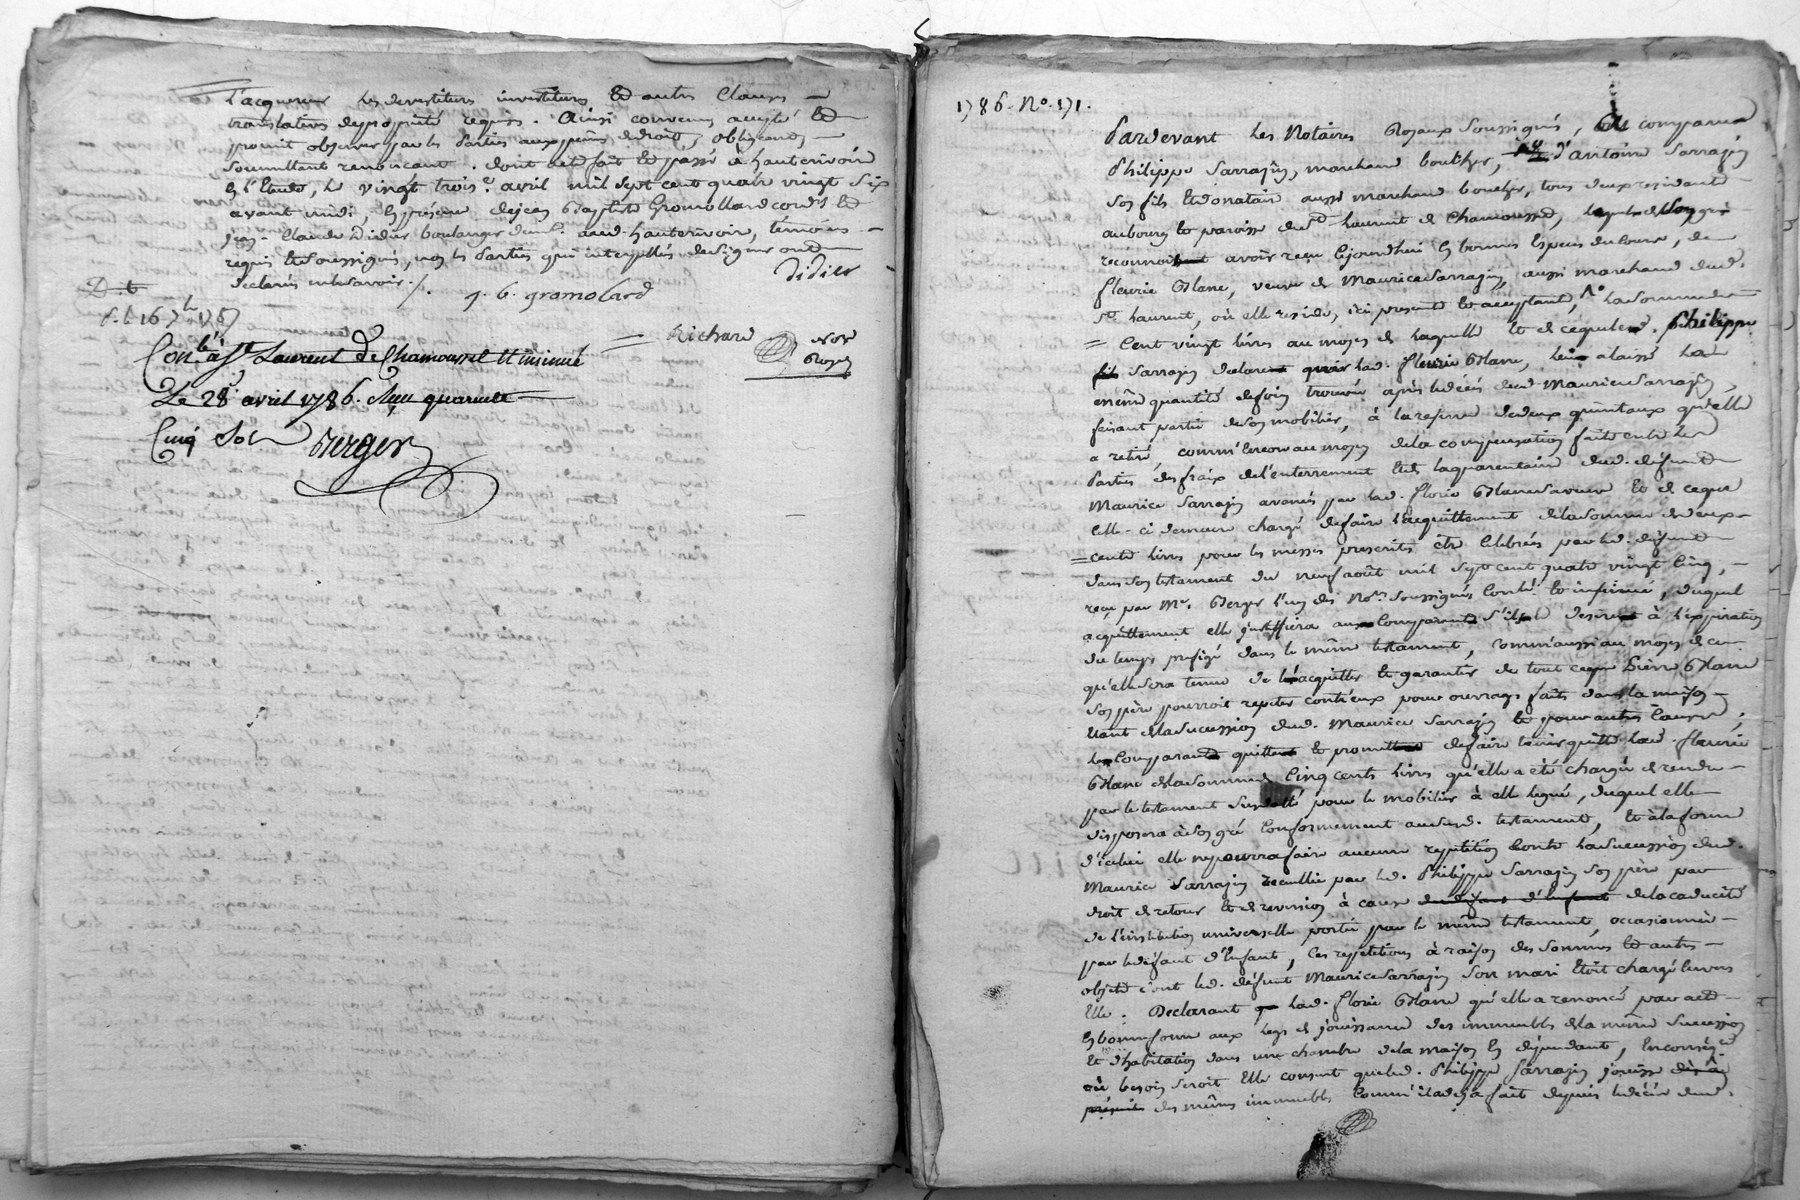 L'acquereur les devestitures investitures Et autres Clauses —
translatives de propriété requises. Ainsi convenu, accepté Et
promit observer par les Parties aux peines de droit, obligeant —
soumettant renonçant. Dont acte fait Et passé à hauterivoire
En l'Etude, le vingt trois avril mil sept cent quatre vingt six
avant midi, En présence de jean Baptiste Gromollard cord.r Et
jean Claude Didier boulanger dem.t aud. hauterivoire, témoins —
requis Et soussignés, non les Parties qui interpellées de signer ont
declarés ne le savoir ./.
Didier
j. b. gromolard
Richard
Not.re
Royal
Con.lé à St Laurent De Chamousset Et insinué
Le 28 avril 1786. Reçu quarante
Cinq Sols Berger
1786. No. 171.
Pardevant Les Notaires Royaux soussignés, a comparu
Philippe Sarrazin, marchand boucher, d'antoine Sarrazin
son fils Et donataire aussi marchand boucher, tous deux residants
au bourg Et paroisse de St Laurent de Chamousset,
reconnoit avoir reçu cejourdhui En bonnes Especes de cours, de
fleurie Blanc, veuve de Maurice Sarrazin, aussi marchand dud.
St Laurent, où elle reside, ici presente Et acceptant, la somme de
Cent vingt livres au moyen de laquelle Et de ce que led. Philippe
Sarrazin declare lad. fleurie Blanc, a laissé la
même quantité de foin trouvée après le décès dud. Maurice Sarrazin,
faisant partie de son mobilier, à la reserve de deux quintaux qu'elle
a retiré, comm'Encore au moyen de la compensation faite entre les
Parties des fraix de l'enterrement Et de la quarantaine dud. défunt
Maurice Sarrazin avancés par lad. florie Blanc sa veuve Et de ce que
celle-ci demeure chargé de faire l'acquittement de la somme de deux —
cents livres pour les messes prescrites être Celebrées par led. défunt
dans son testament du neuf août mil sept cent quatre vingt Cinq, —
reçu par Me. Berger l'un des No.res soussignés Con.lé Et insinué, duquel
acquittement elle justiffiera aux Comparants s'ils le desirent à l'expiration
du temps prefigé dans le même testament, comm'aussi au moyen de ce
qu'elle sera tenue de l'acquitter Et garantir de tout ce que Pierre Blanc
son père pourroit repeter contr'eux pour ouvrages faits dans la maison —
Etant de la succession dud. Maurice Sarrazin Et pour autres Causes,
Comparant quitte Et promet de faire tenir quitte lad. fleurie
Blanc de la somme Cinq cents livres qu'elle a été chargée de rendre —
par le testament susdatté pour le mobilier à elle legué, duquel elle —
disposera à son gré Conformement audit testament, Et à la forme
d'icelui elle ne pourra faire aucune repetition contre La Succession dud.
Maurice Sarrazin recuellie par led. Philippe Sarrazin son père par
droit de retour Et de reversion à cause de la caducité
de l'institution universelle portée par le même testament, occasionnée —
par le défaut d'Enfant, Ces repetitions à raison des sommes Et autres —
objets dont led. défunt Maurice Sarrazin son mari Etoit chargé Envers
Elle. Declarant lad. florie Blanc qu'elle a renoncé par acte —
En bonne forme aux legs de jouissance des immeubles de la même Succession
Et d'habitation dans une chambre de la maison En dépendant, En conséq.ce
où besoin seroit Elle consent que led. Philippe Sarrazin jouisse
des mêmes immeubles Comm'il a déja fait depuis le décès dud.